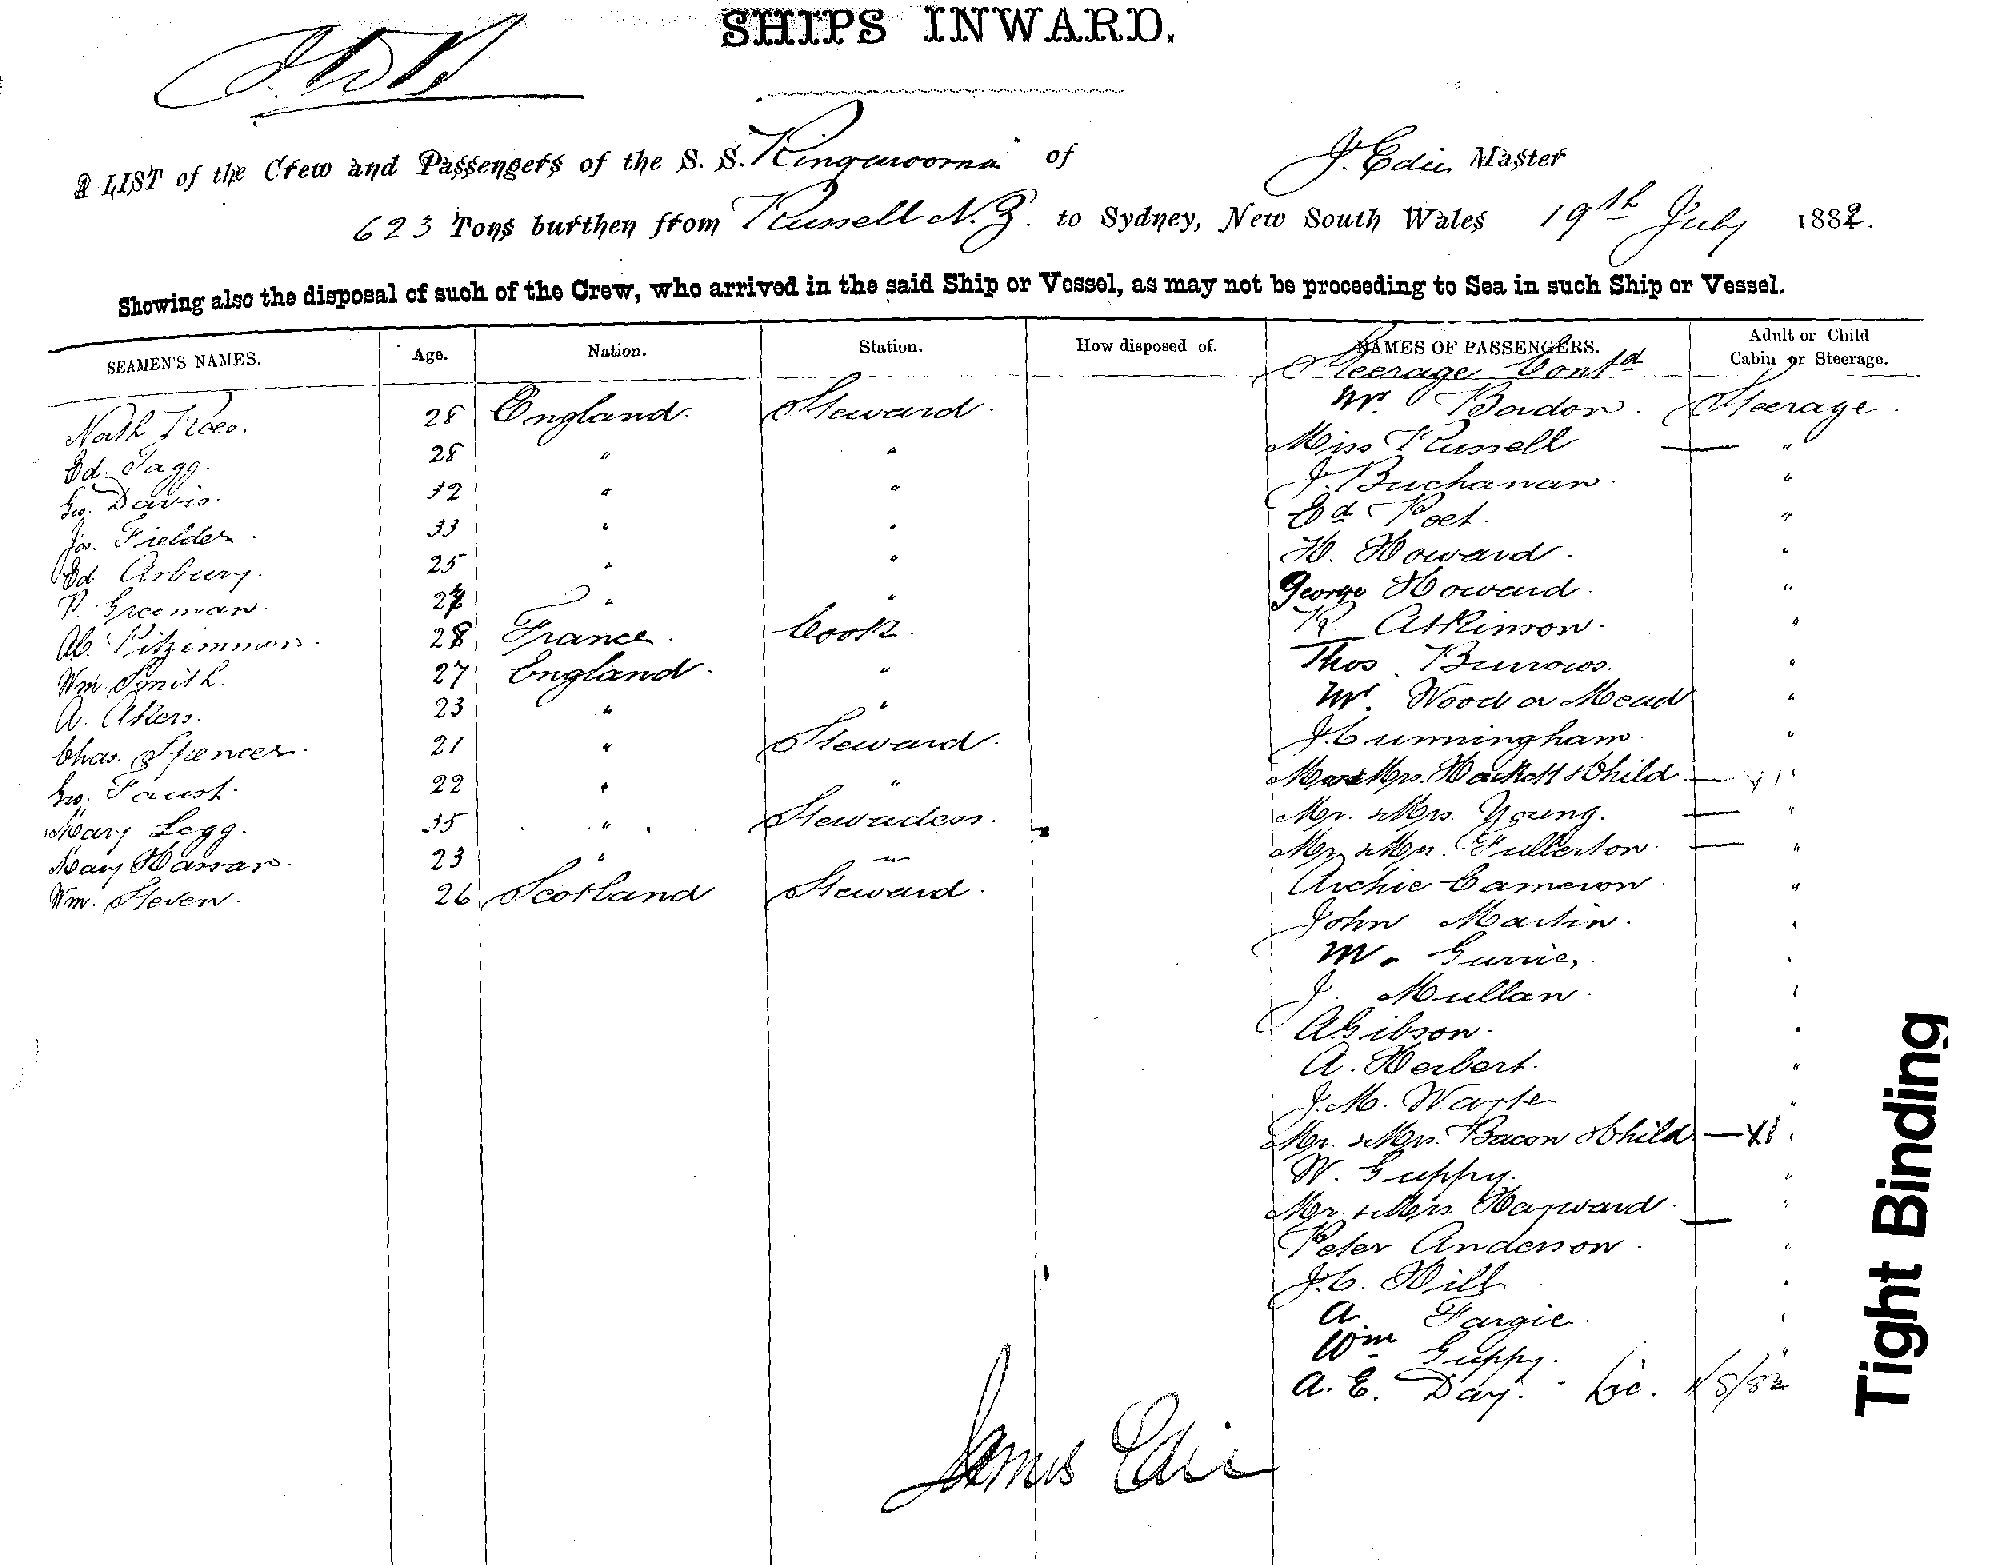 SHIPS INWARD.
A LIST of the Crew and Passengers of the S. S. Ringarooma of J. Edie Master
623 Tons burthen from Russell N. Z. to Sydney, New South Wales 19th July 1882.
Showing also the disposal of such of the Crew, who arrived in the said Ship or Vessel, as may not be proceeding to Sea in such Ship or Vessel.
SEAMEN'S NAMES. Age. Nation. Station. How disposed of. NAMES OF PASSENGERS. Adult or Child Cabin or Steerage.
Steerage Contd
28 England. Steward. Mr. Bordon. Steerage.
Ed. Tagg. 28 " " Miss Russell — "
Geo. Davis. 32 " " J. Buchanan. "
Jos. Fielder. 33 " " Ed Poet. "
Ed Asbury. 25 " " H. Howard. "
P. Greeman. " " George Howard. "
28 France. Cook. R Atkinson. "
Wm. Smith. 27 England. " Thos. Burrows. "
A. Akers. 23 " " Mr. Wood or Mead "
Chas. Spencer. 21 " Steward. J. Cunningham. "
Geo. Faust. 22 " " Mr & Mrs. Hackett & Child — "
Mary Legg. 35 " Stewadess. Mr. & Mrs. Young. — "
Mary Hassar. 23 " " Mr. & Mrs. Fullerton. — "
Wm. Steven. 26 Scotland Steward. Archie Cameron "
John Martin. "
M. Gurrie, "
J. Mullan. "
A Gibson. "
A. Herbert. "
J. M. Warte "
Mr. & Mrs. Bacon & Child — "
W. Guppy. "
Mr. & Mrs. Harward. — "
Peter Anderson. "
J. C. Hill "
A Fargie. "
Wm Guppy. "
A. E. Day. 1/8/82
James Edie
Tight Binding